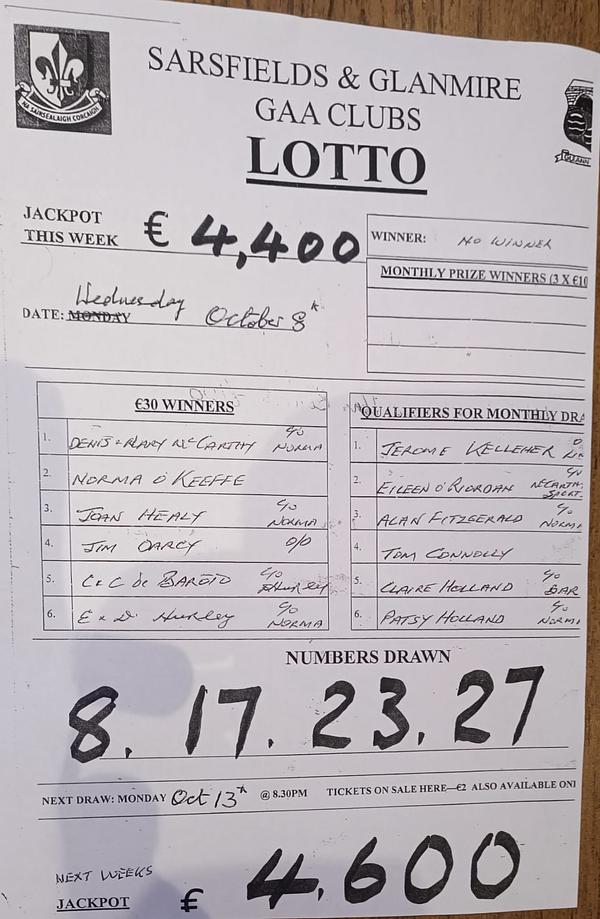 SARSFIELDS & GLANMIRE
GAA CLUBS
LOTTO
NA SAIRSEALAIGH CORCAIGH
JACKPOT
THIS WEEK € 4,400
WINNER: NO WINNER
MONTHLY PRIZE WINNERS (3 X €10
Wednesday
DATE: MONDAY October 8th
€30 WINNERS
1. DENIS & MARY McCARTHY c/o NORMA
2. NORMA O'KEEFFE
3. JOAN HEALY c/o NORMA
4. JIM DARCY o/o
5. C & C de BAROID c/o Hurley
6. E & D Hurley c/o NORMA
QUALIFIERS FOR MONTHLY DRA
1. JEROME KELLEHER
2. EILEEN O'RIORDAN c/o McCARTH SPORT
3. ALAN FITZGERALD c/o NORM
4. TOM CONNOLLY
5. CLAIRE HOLLAND c/o BAR
6. PATSY HOLLAND c/o NORM
NUMBERS DRAWN
8. 17. 23. 27
NEXT DRAW: MONDAY Oct 13th @ 8.30PM TICKETS ON SALE HERE—€2 ALSO AVAILABLE ONL
NEXT WEEKS
JACKPOT € 4,600